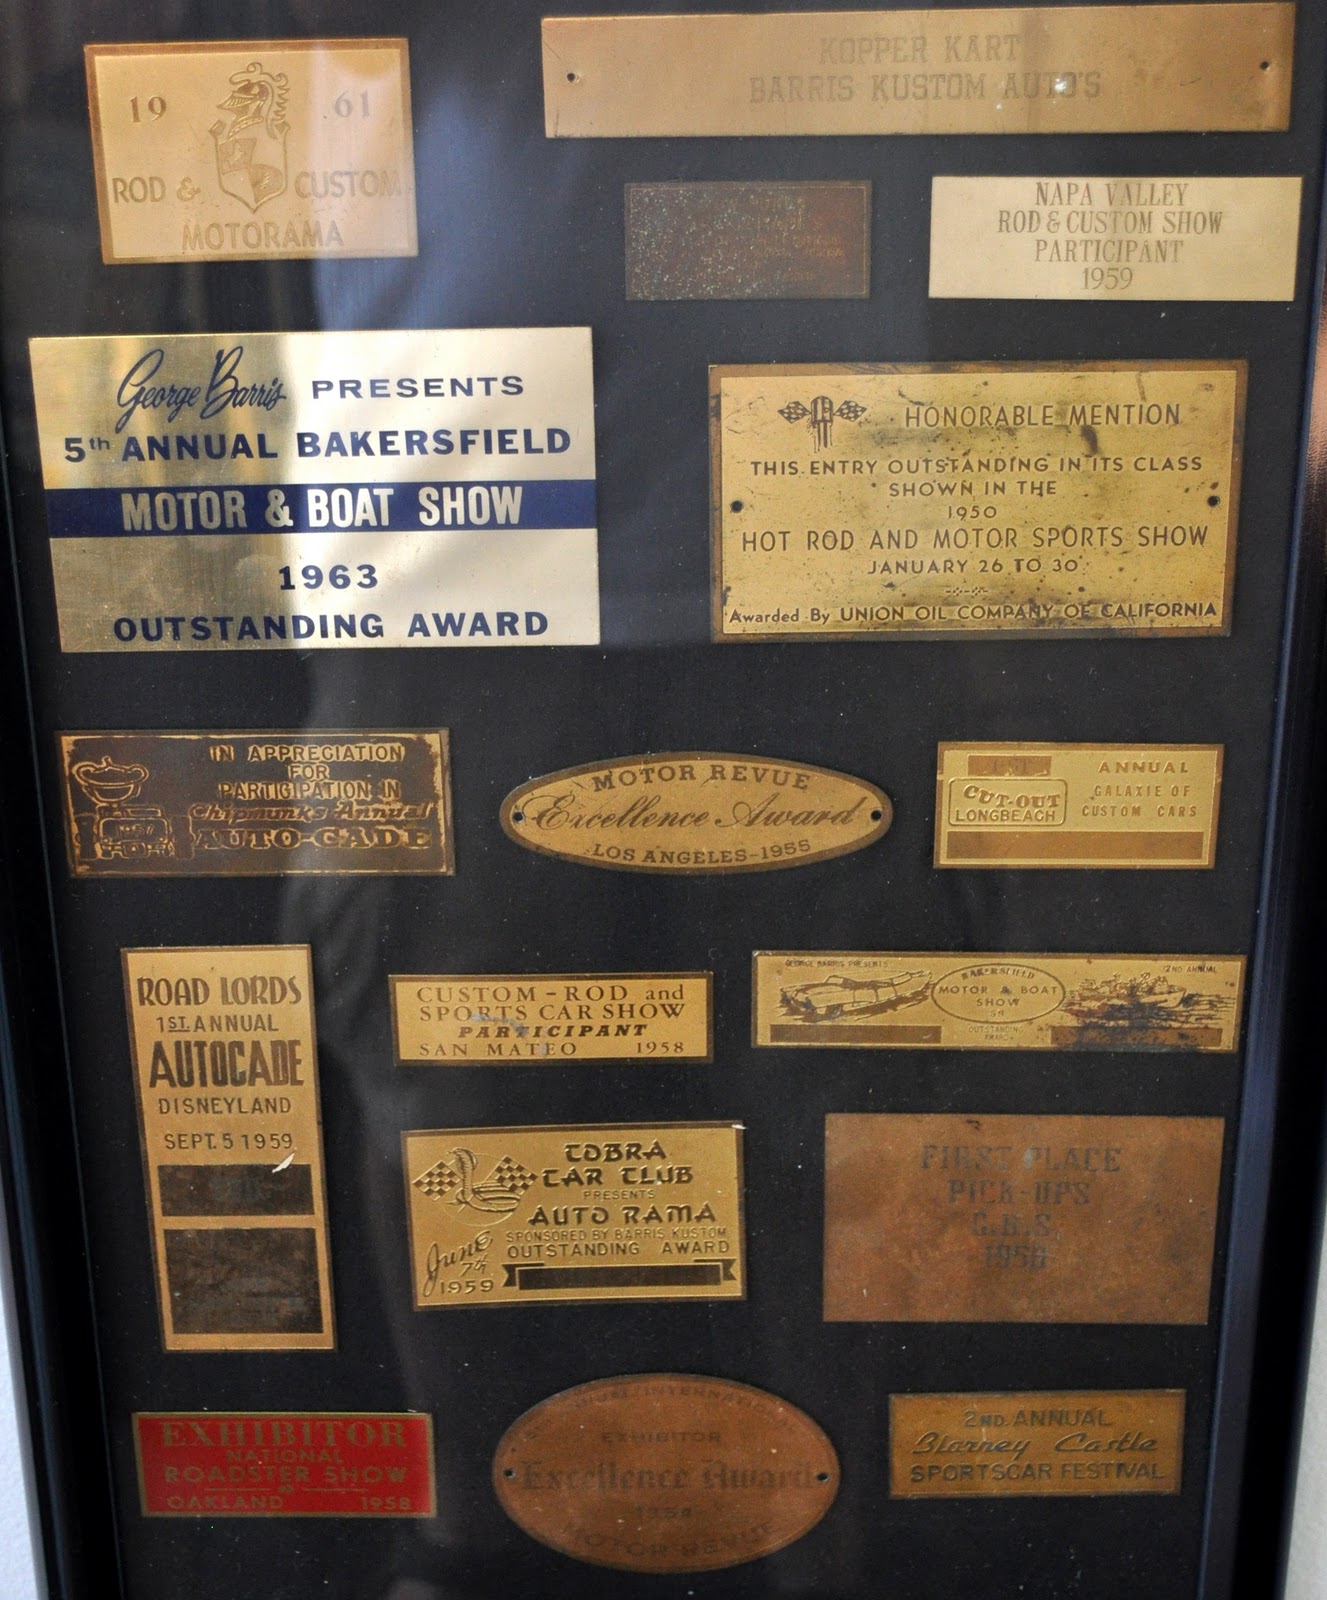 19 61
ROD & CUSTOM
MOTORAMA
KOPPER KART
BARRIS KUSTOM AUTO'S
NAPA VALLEY
ROD & CUSTOM SHOW
PARTICIPANT
1959
George Barris PRESENTS
5th ANNUAL BAKERSFIELD
MOTOR & BOAT SHOW
1963
OUTSTANDING AWARD
HONORABLE MENTION
THIS ENTRY OUTSTANDING IN ITS CLASS
SHOWN IN THE
1950
HOT ROD AND MOTOR SPORTS SHOW
JANUARY 26 TO 30
Awarded By UNION OIL COMPANY OF CALIFORNIA
IN APPRECIATION
FOR
PARTICIPATION IN
Chipmunks Annual
AUTO-CADE
MOTOR REVUE
Excellence Award
LOS ANGELES-1955
1ST ANNUAL
CUT-OUT GALAXIE OF
LONGBEACH CUSTOM CARS
ROAD LORDS
1ST ANNUAL
AUTOCADE
DISNEYLAND
SEPT. 5 1959
CUSTOM-ROD and
SPORTS CAR SHOW
PARTICIPANT
SAN MATEO 1958
GEORGE BARRIS PRESENTS 2ND ANNUAL
BAKERSFIELD
MOTOR & BOAT
SHOW
OUTSTANDING
COBRA
CAR CLUB
PRESENTS
AUTO RAMA
SPONSORED BY BARRIS KUSTOM
OUTSTANDING AWARD
June
7th
1959
FIRST PLACE
PICK-UPS
EXHIBITOR
NATIONAL
ROADSTER SHOW
OAKLAND 1958
INTERNATIONAL
EXHIBITOR
Excellence Award
MOTOR REVUE
2ND ANNUAL
Blarney Castle
SPORTSCAR FESTIVAL